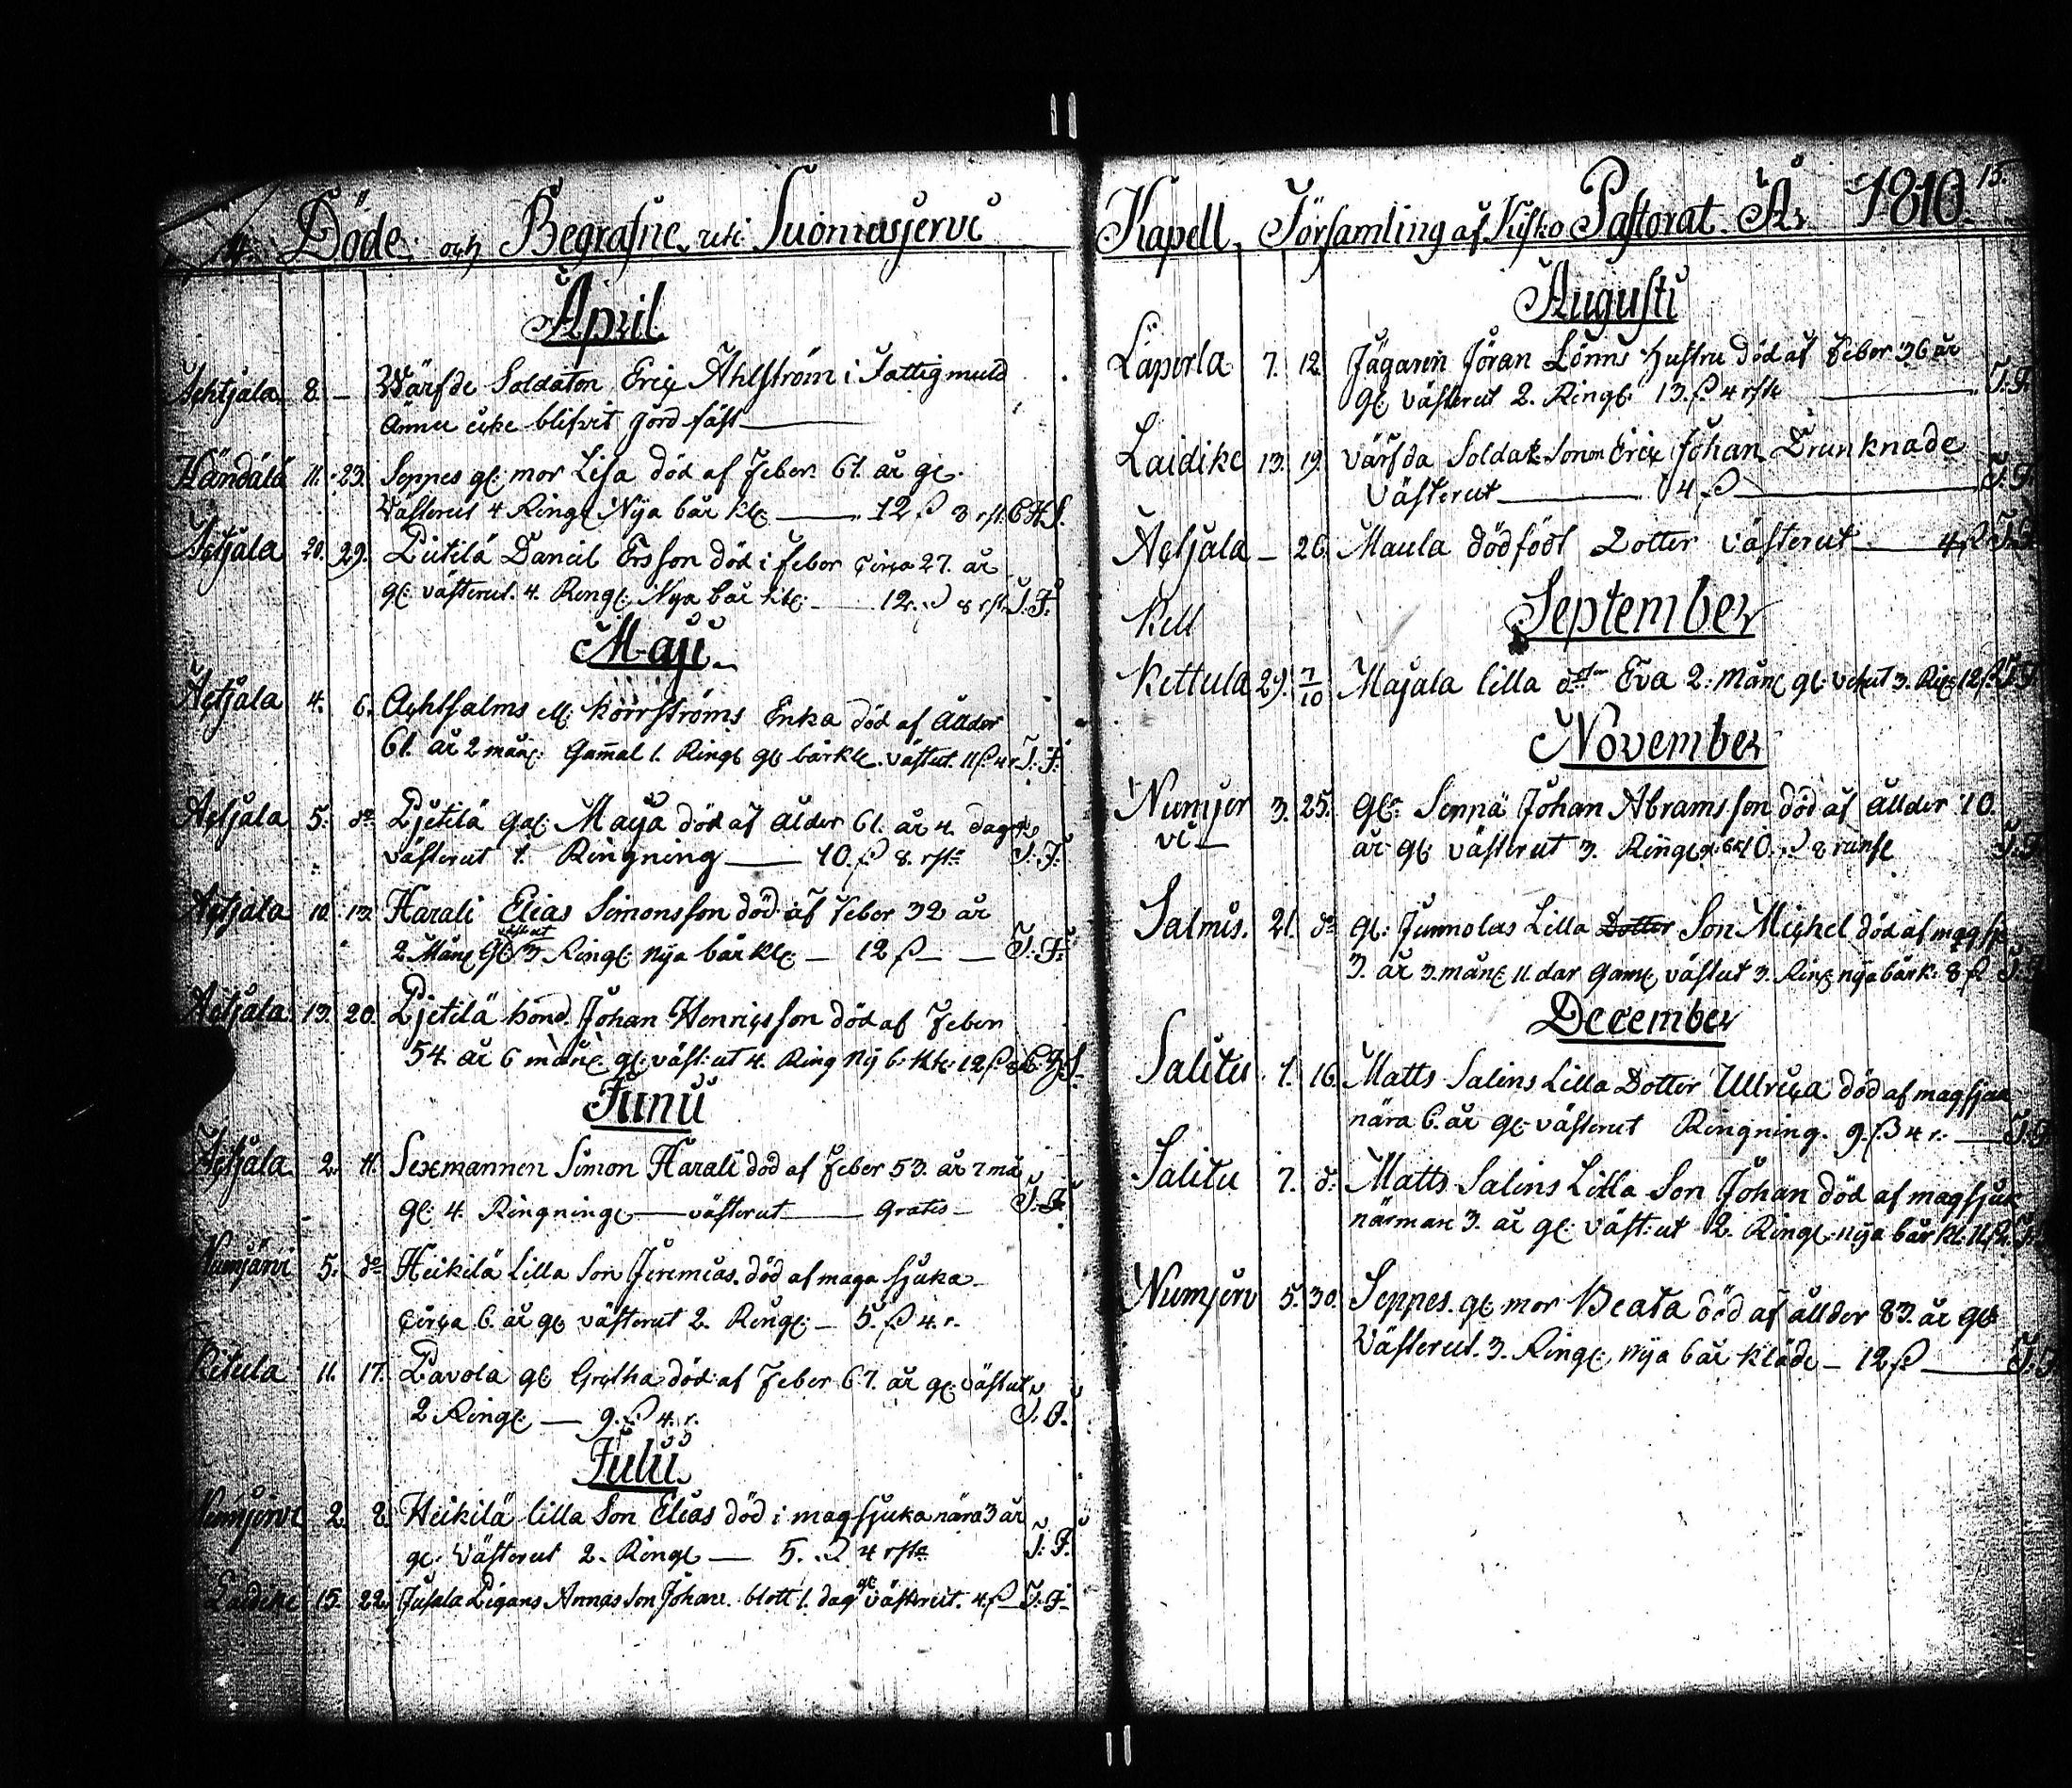 14. Döde och Begrafne uti Suomusjervi
April
Achtjala 8. — Wärfde Soldaten Eriç Ahlström i Fattigmuld
Ännu icke blifvit Jord fäst
Händälä 11. 23. Seppes gl: mor Lisa död af Feber 61. år gl.
Västerut 4 Ringl Nya bår kl: 12 ß 8 rst. CHS.
Açtjala 20. 29. Pietilä Daniel Ersson död i Feber çirça 27. år
gl: västerut. 4. Ringl: Nya bår kl: 12. ß 8 rst. J. F.
Maji
Açtjala 4. 6. Açhtsalms ell: Körrströms Enka död af ålder
61. år 2 mån: Gam̄al 1. Ringl gl bårkl. väst.ut. 11 ß 4 r. J. F.
Açtjala 5. do Pjetilä gal: Maja död af ålder 61. år 4. dagr
västerut 1. Ringning 10. ß 8. rst: J. F.
Açtjala 10. 13. Harali Elias Simonsson död af Feber 32 år
2. Mån: gl väst ut 3 Ringl: nya bår kl: 12 ß J. F.
Açtjala 13. 20. Pjetilä bond. Johan Henriçsson död af Feber
54. år 6 mån: gl: väst: ut 4. Ring Ny b: kl: 12 ß 8
Junii
Açtjala 2. 11. Sexmannen Simon Harali död af Feber 53. år 7 må
gl: 4. Ringningl västerut Gratis J. F.
Numjärvi 5. do Heikilä Lilla Son Jeremias död af maga sjuka
çirça 6. år gl västerut 2. Ringl: 5. ß 4. r.
Kitula 11. 17. Pavola gl Gretha död af Feber 67. år gl: väst ut
2 Ringl: 9. ß 4. r. J. F.
Julii
Numjervi 2. 8. Heikilä lilla Son Elias död i magsjuka nära 3 år
gl. Västerut 2. Ringl 5. ß 4 rst: J. F.
Laidike 15. 22. Jusala Pigans Annas Son Johan. blott 1. dag gl västerut. 4. ß J. F.
Kapell, Församling af Kisko Pastorat. År 1810. 15.
Augusti
Läperla 7. 12. Jägaren Jöran Lönns Hustru död af Feber 36 år
gl: västerut 2. Ringl: 13. ß 4 rst J. F.
Laidike 13. 19. värfda Soldat Sonen Eriç Johan Drunknade
Västerut 4 ß J. F.
Açtjala — 26. Maula dödfödt Dotter västerut 4 ß J. F.
Kell
September
Kettula 29. 7/10 Majala lilla dotter Eva 2. Mån: gl: väst.ut 3. Ringl 12 ß J. F.
November
Numjer 3. 25. gl: Sennä Johan Abramsson död af ålder 70.
vi år gl: västerut 3. Ringl: 10. ß 8 runst J. F.
Salmis. 21. do gl. Junnolas Lilla Dotter Son Miçhel död af magsju
3. år 3. mån: 11. dar Gam: väst ut 3. Ring nya bårk: 8 ß J. F.
December
Salitu 1. 16. Matts Salins Lilla Dotter Ullriça död af magsjuk
nära 6. år gl. västerut Ringning. 9. ß 4 r. J. F.
Salitu 7. do Matts Salins Lilla Son Johan död af magsjuk
närman 3. år gl: väst: ut 2. Ringl: nya bår kl: 11 ß J. F.
Numjerv 5. 30. Seppes. gl mor Beata död af ållder 83. år gl:
Västerut. 3. Ringl: nya bår kläde — 12 ß J. F.